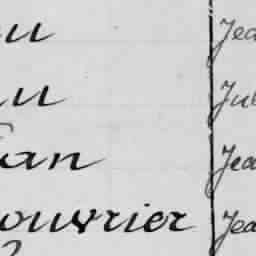 u Jea
u Jul
an Jea
ouvrier Jea